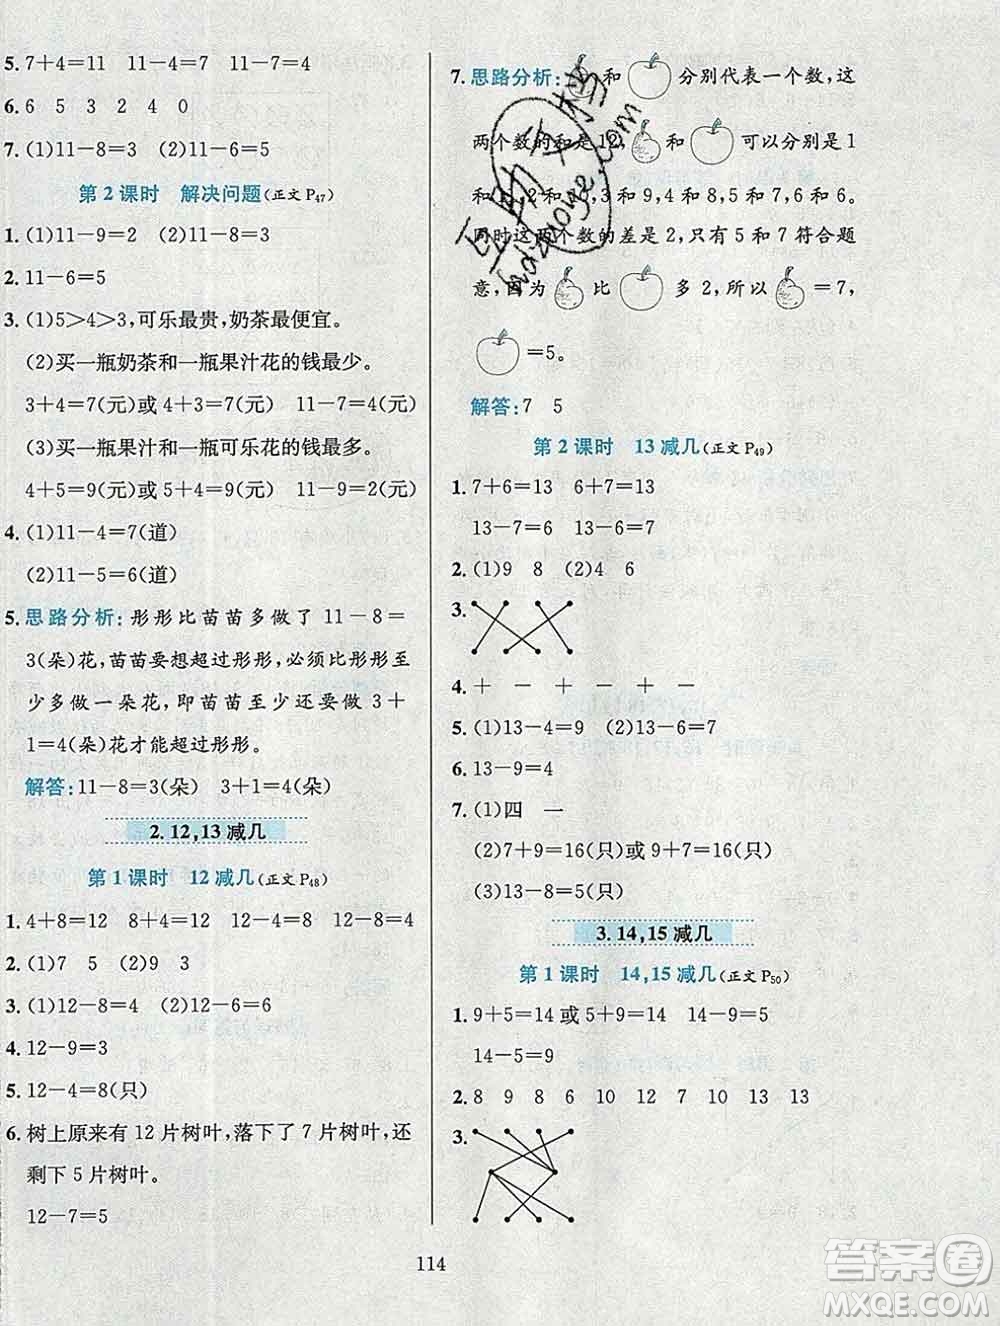 5. 7+4=11　11-4=7　11-7=4
6. 6　5　3　2　4　0
7. (1)11-8=3　(2)11-6=5
第 2 课时　解决问题(正文 P47)
1. (1)11-9=2　(2)11-8=3
2. 11-6=5
3. (1)5>4>3,可乐最贵,奶茶最便宜。
(2)买一瓶奶茶和一瓶果汁花的钱最少。
3+4=7(元)或 4+3=7(元)　11-7=4(元)
(3)买一瓶果汁和一瓶可乐花的钱最多。
4+5=9(元)或 5+4=9(元)　11-9=2(元)
4. (1)11-4=7(道)
(2)11-5=6(道)
5. 思路分析:彤彤比苗苗多做了 11-8=
3(朵)花,苗苗要想超过彤彤,必须比彤彤至
少多做一朵花,即苗苗至少还要做 3+
1=4(朵)花才能超过彤彤。
解答:11-8=3(朵)　3+1=4(朵)
2. 12,13 减几
第 1 课时　12 减几(正文 P48)
1. 4+8=12　8+4=12　12-4=8　12-8=4
2. (1)7　5　(2)9　3
3. (1)12-8=4　(2)12-6=6
4. 12-9=3
5. 12-4=8(只)
6. 树上原来有 12 片树叶,落下了 7 片树叶,还
剩下 5 片树叶。
12-7=5
7. 思路分析:和 分别代表一个数,这
两个数的和是 12, 和 可以分别是 1
和 11,2 和 10,3 和 9,4 和 8,5 和 7,6 和 6。
同时这两个数的差是 2,只有 5 和 7 符合题
意,因为 比 多 2,所以 =7,
=5。
解答:7　5
第 2 课时　13 减几(正文 P49)
1. 7+6=13　6+7=13
13-7=6　13-6=7
2. (1)9　8　(2)4　6
3.
4. +　-　+　-　-
5. (1)13-4=9　(2)13-6=7
6. 13-9=4
7. (1)四　一
(2)7+9=16(只)或 9+7=16(只)
(3)13-8=5(只)
3. 14,15 减几
第 1 课时　14,15 减几(正文 P50)
1. 9+5=14 或 5+9=14　14-9=5
14-5=9
2. 8　9　6　9　10　12　13　13
3.
114
答案圈
MXQE.COM